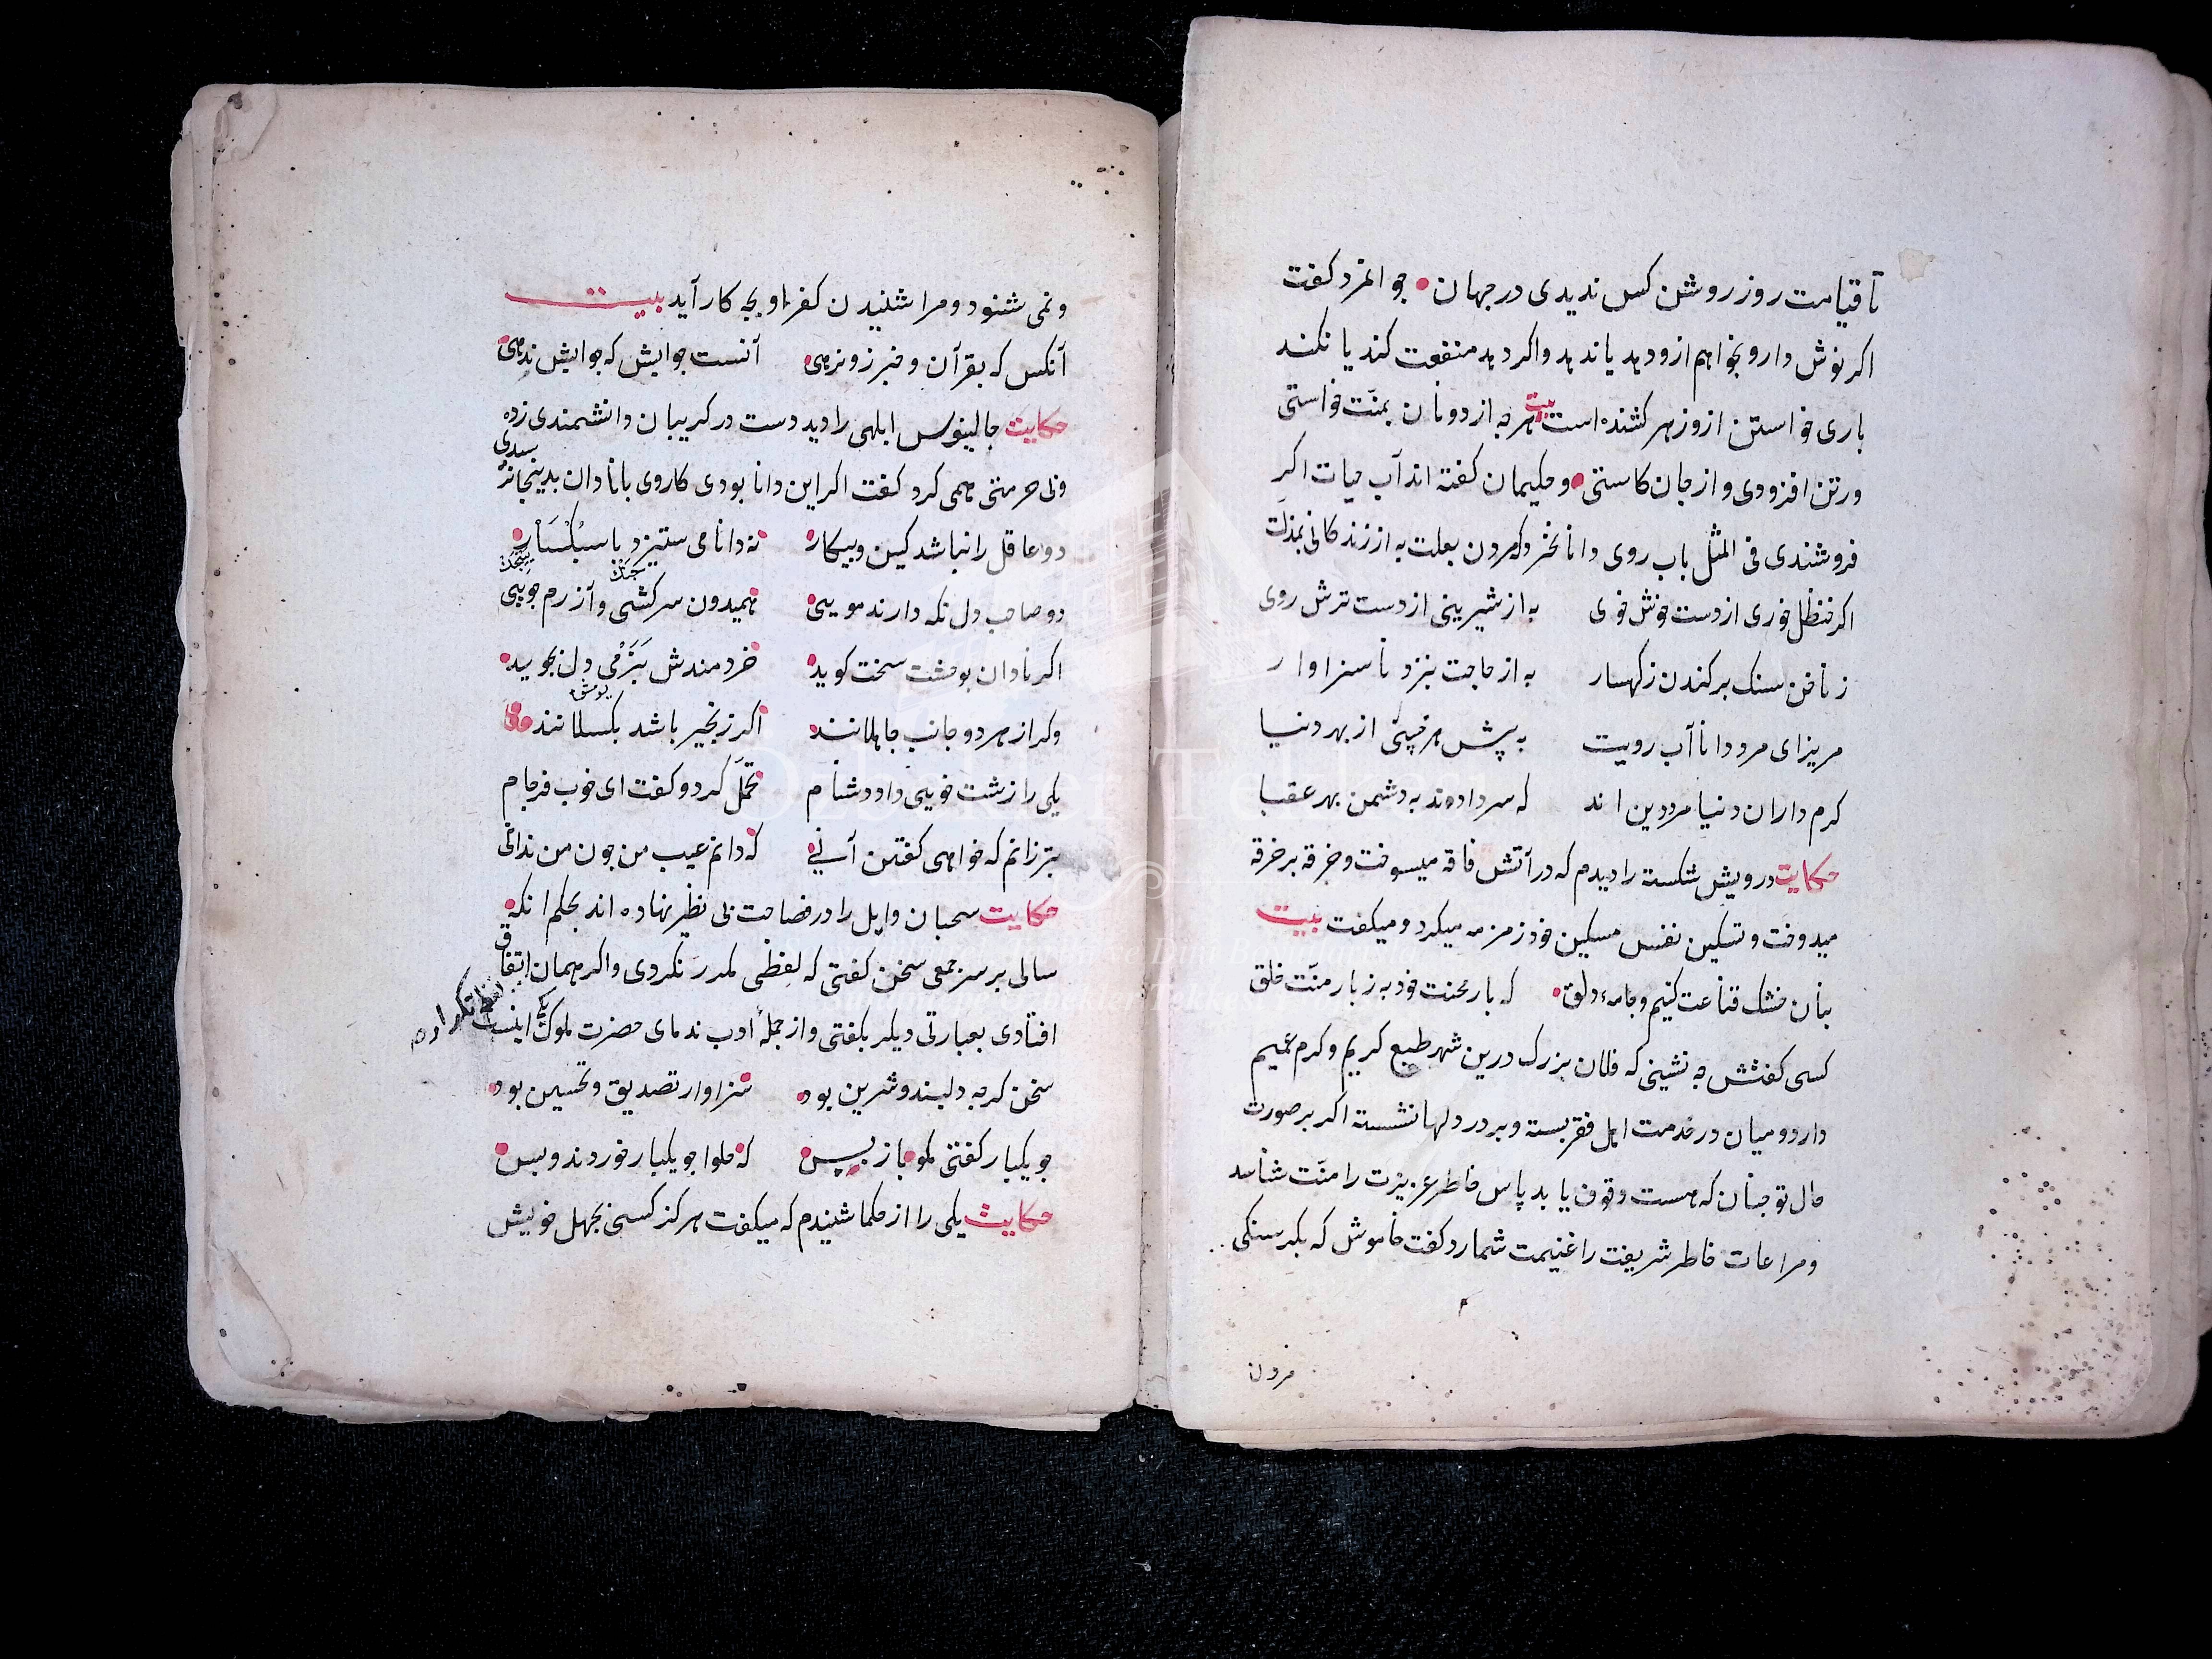 تا قیامت روز روشن کس ندیدی در جهان جوانمرد کفت
اکر نوش دارو بخواهم ازو دهد یا ندهد واکر دهد منفعت کند یا نکند
باری خواستن ازو زهر کشنده است بیت هرجه از دونان بمنّت خواستی
ورتن افزودی و از جان کاستی وحکیمان کفته اند آب حیات اکر
فروشندی فی المثل باب روی دانا نخرد که مردن بعلت به از زندکانی بمذلت
اکر حنظل خوری از دست خوش خوی به از شیرینی از دست ترش روی
ز ناخن سنک برکندن زکهسار به از حاجت بنزد ناسزاوار
مریز ای مرد دانا آب رویت به پیش هر خسی از بهر دنیا
کرم داران دنیا مرد دین اند که سر داده ند به دشمن بهر عقبا
حکایت درویش شکسته را دیدم که در آتش فاقه میسوخت و خرقه بر خرقه
میدوخت و تسکین نفس مسکین خود زمزمه میکرد و میکفت بیت
بنان خشک قناعت کنیم وجامهٔ دلق که بار محنت خود به ز بار منّت خلق
کسی کفتش چه نشینی که فلان بزرک درین شهر طبع کریم و کرم عمیم
دارد و میان در خدمت اهل فقر بسته و بر در دلها نشسته اکر بر صورت
حال تو جنان که هست وقوف یابد پاس خاطر عزیزت را منّت شناسد
ومراعات خاطر شریفت را غنیمت شمارد کفت خاموش که بکرسنکی
مردن
ونمی شنود ومرا شنیدن کفر او بچه کار آید بیت
آنکس که بقرآن وخبر زو نرهی آنست جوابش که جوابش ندهی
حکایت جالینوس ابلهی را دید دست در کریبان دانشمندی زده
وبی حرمتی همی کرد کفت اکر این دانا بودی کار وی با نادان بدینجا نرسیدی
دو عاقل را نباشد کین وپیکار نه دانا می ستیزد با سبکسار
دو صاحب دل نکه دارند مویی همیدون سرکشی وآزرم جویی
اکر نادان بوحشت سخت کوید خردمندش بنرمی دل بجوید
وکر از هر دو جانب جاهلانند اکر زنجیر باشد بکسلانند
یکی را زشت خویی داد دشنام تحمّل کرد و کفت ای خوب فرجام
بتر زانم که خواهی کفتن آنی که دانم عیب من جون من ندانی
حکایت سحبان وایل را در فصاحت بی نظیر نهاده اند بحکم انکه
سالی بر سر جمعی سخن کفتی که لفظی مکرر نکردی واکر همان اتفاق
افتادی بعبارتی دیکر بکفتی واز جملهٔ ادب ندمای حضرت ملوک اینست
سخن کرجه دلبند وشرین بود سزاوار تصدیق وتحسین بود
جو یکبار کفتی مکو باز پس که حلوا جو یکبار خوردند وبس
حکایت یکی را از حکما شنیدم که میکفت هرکز کسی بجهل خویش